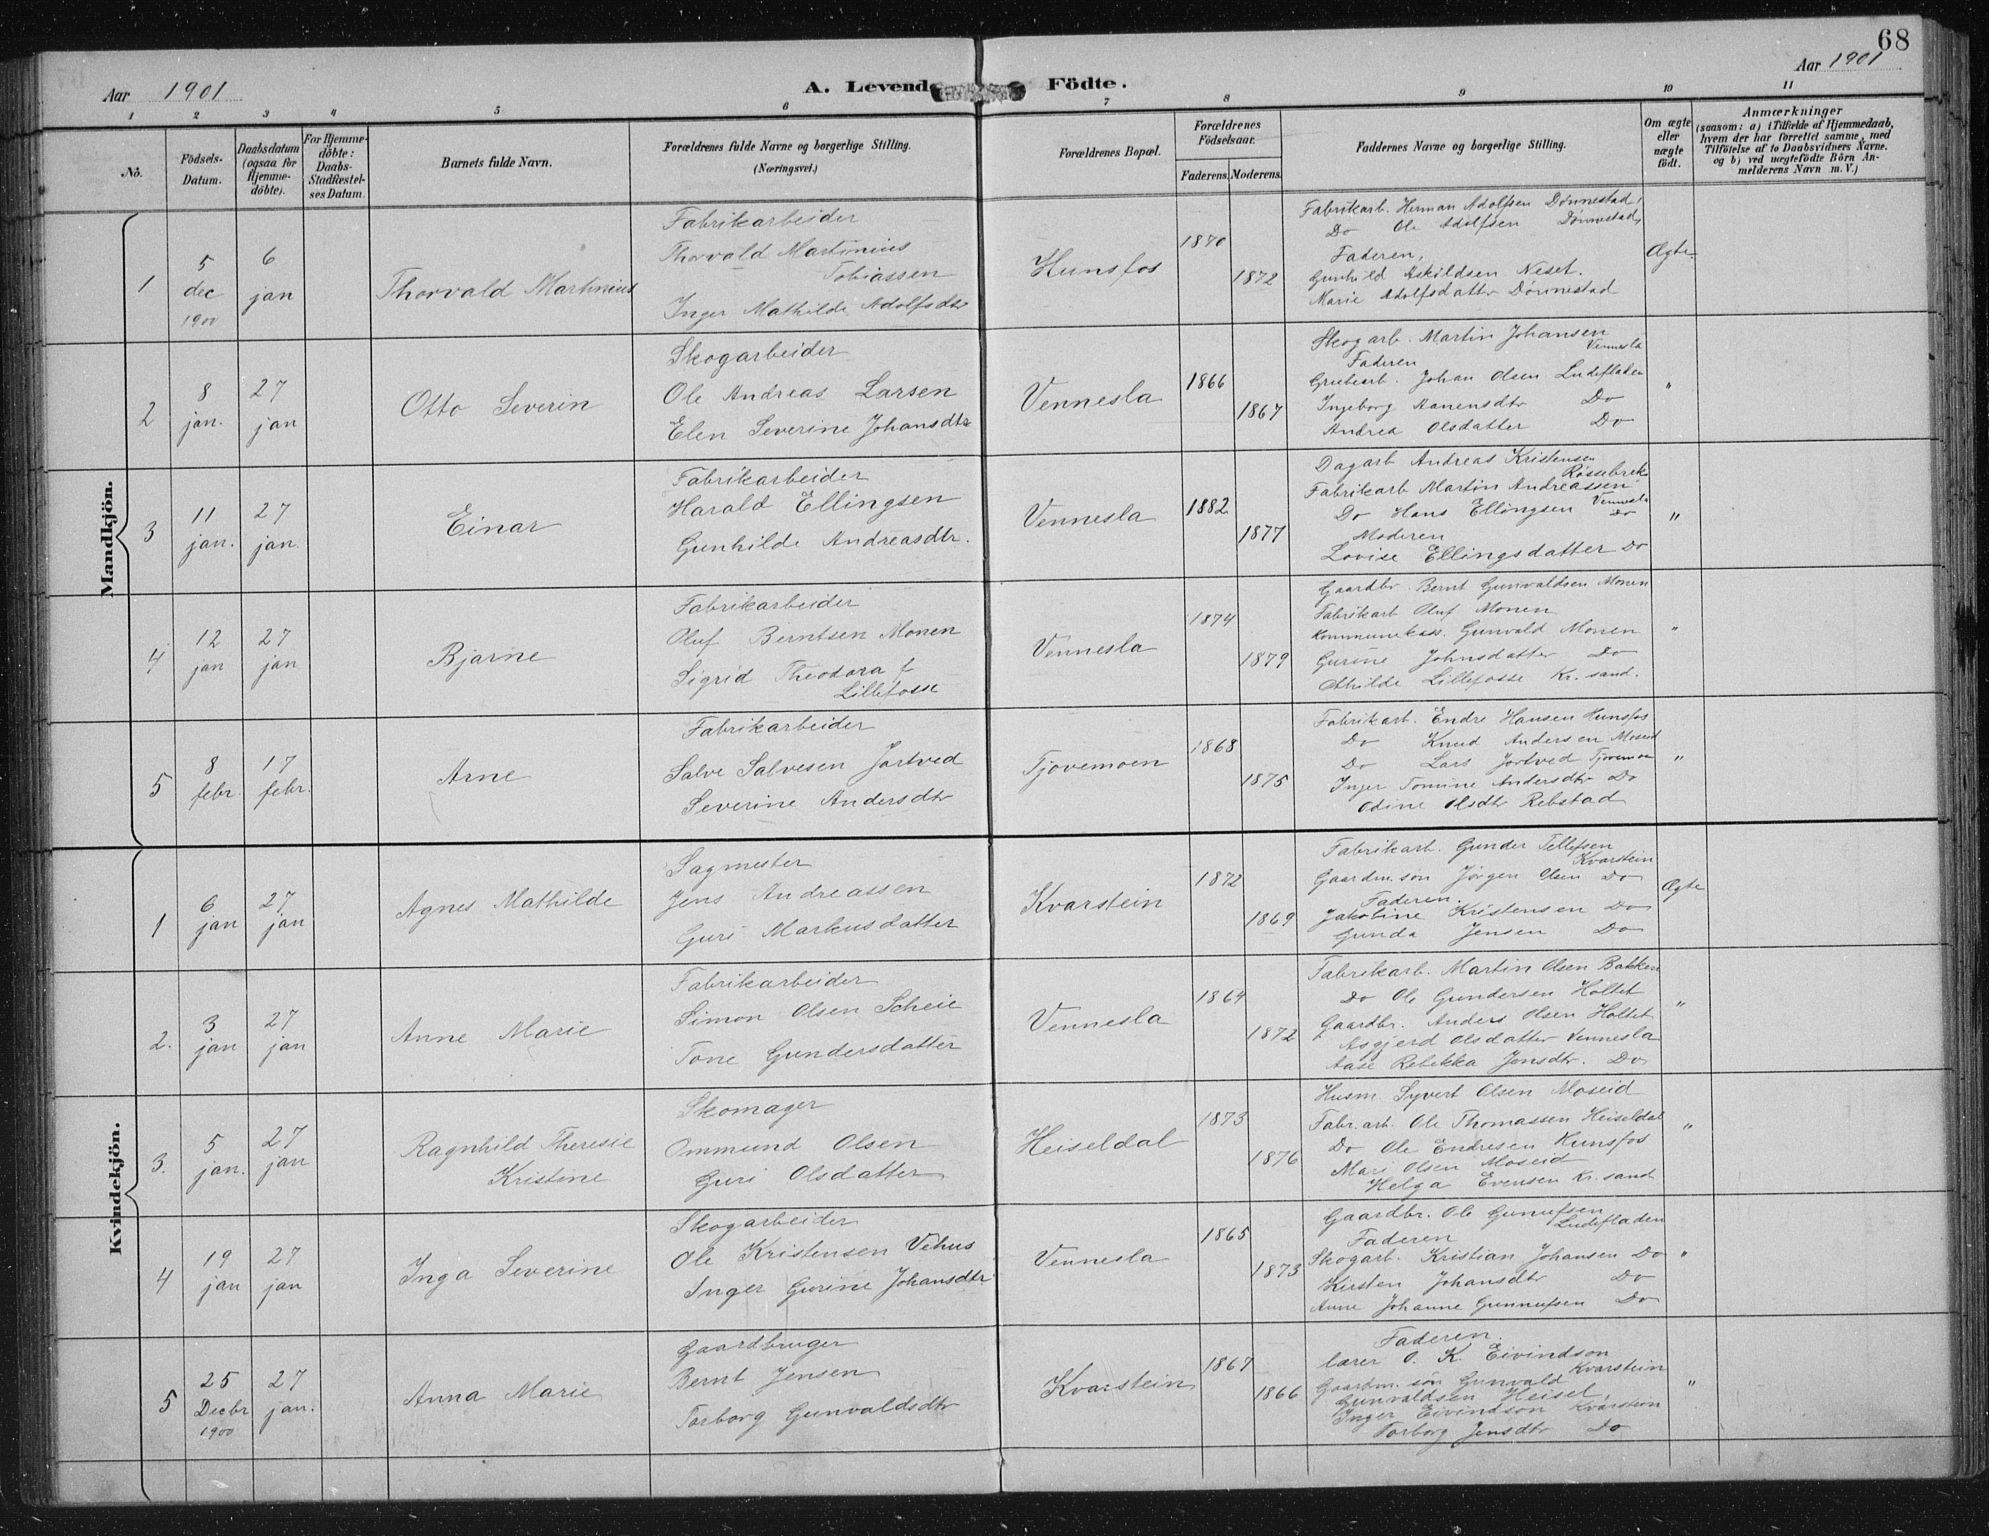 68
Aar 1901
A. Levende Födte.
Aar 1901
1 2 3 4 5 6 7 8 9 10 11
No.
Födsels-Datum.
Daabsdatum (ogsaa for Hjemme-döbte).
For Hjemme-döbte: Daabs-Stadfæstel-ses Datum.
Barnets fulde Navn.
Forældrenes fulde Navne og borgerlige Stilling.
(Næringsvei.)
Forældrenes Bopæl.
Forældrenes Födselsaar.
Faderens. Moderens.
Faddernes Navne og borgerlige Stilling.
Om ægte eller uægte födt.
Anmærkninger
(saasom: a) i Tilfælde af Hjemmedaab,
hvem der har forrettet samme, med
Tilföielse af to Daabsvidners Navne.
og b) ved uægtefödte Börn An-
melderens Navn m. V.)
Mandkjön.
1
5 dec 1900
6 jan
Thorvald Martinius
Fabrikarbeider
Thorvald Martinius
Tobiassen
Inger Mathilde Adolfsdtr
Hunsfos
1870
1872
Fabrikarb. Herman Adolfsen Dönnestad,
Do Ole Adolfsen Dönnestad,
Faderen,
Gunhild Askildsen Neset.
Marie Adolfsdatter Dönnestad
Ægte
2
8 jan.
27 jan
Otto Severin
Skogarbeider
Ole Andreas Larsen
Elen Severine Johansdtr
Vennesla
1866
1867
Skogarb. Martin Johansen
Vennesla
Faderen
Grubearb. Johan Olsen Ludefladen
Ingeborg Aanensdtr Do
Andrea Olsdatter Do
"
3
11 jan.
27 jan.
Einar
Fabrikarbeider
Harald Ellingsen
Gunhilde Andreasdtr.
Vennesla
1882
1877
Dagarb Andreas Kristensen
Fabrikarb Martin Andreassen
Vennesla
Do Hans Ellingsen Do
Moderen
Lovise Ellingsdatter Do
"
4
12 jan
27 jan
Bjarne
Fabrikarbeider
Oluf Berntsen Monen
Sigrid Theodora f
Lillefosse
Vennesla
1874
1879
Gaardbr. Bernt Gunvaldsen Monen
Fabrikarb Oluf Monen
Kommunekass. Gunvald Monen
Gurine Johnsdatter Do
Othilde Lillefosse Kr. sand.
"
5
8 febr.
17 febr.
Arne
Fabrikarbeider
Salve Salvesen Jortved
Severine Andersdtr
Tjovemoen
1868
1875
Fabrikarb. Endre Hansen Hunsfos
Do Knud Andersen Moseid
Do Lars Jortved Tjovemoen
Inger Tomine Andersdtr Do
Odine Olsdtr Rebstad
"
Kvindekjön.
1
6 jan
27 jan
Agnes Mathilde
Sagmester
Jens Andreassen
Guri Markusdatter
Kvarstein
1872
1869
Fabrikarb. Gunder Tellefsen
Kvarstein
Gaardm. sön Jörgen Olsen Do
Faderen.
Jakobine Kristensen Do
Gunda Jensen Do
Ægte
2.
3 jan
27 jan
Anne Marie
Fabrikarbeider
Simon Olsen Scheie
Tone Gundersdatter
Vennesla
1864
1872
Fabrikarb. Martin Olsen Bakken
Do Ole Gundersen Holtet
Gaardbr. Anders Olsen Holtet
Asgjerd Olsdatter Vennesla
Aase Rebekka Jensdtr. Do
"
3.
5 jan.
27 jan
Ragnhild Theresie
Kristine
Skomager
Ommund Olsen
Guri Olsdatter
Heiseldal
1873
1876
Husm. Syvert Olsen Moseid
Fabr. arb. Ole Thomassen Heiseldal
Do Ole Endresen Hunsfos
Mari Olsen Moseid
Helga Evensen Kr. sand
"
4
19 jan
27 jan
Inga Severine
Skogarbeider
Ole Kristensen Vehus
Inger Gurine Johansdtr
Vennesla
1865
1873
Gaardbr. Ole Gunufsen
Ludefladen
Faderen
Skogarb. Kristian Johansen Do
Kirsten Johansdtr Do
Anne Johanne Gunnufsen Do
"
5
25 Decbr 1900
27 jan.
Anna Marie
Gaardbruger
Bernt Jensen
Torborg Gunvaldsdtr
Kvarstein
1867
1866
Faderen.
Lærer O. K. Eivindson
Kvarstein
Gaardm. sön Gunvald
Gunvaldsen Heisel,
Inger Eivindson Kvarstein
Torborg Jensdtr Do
"